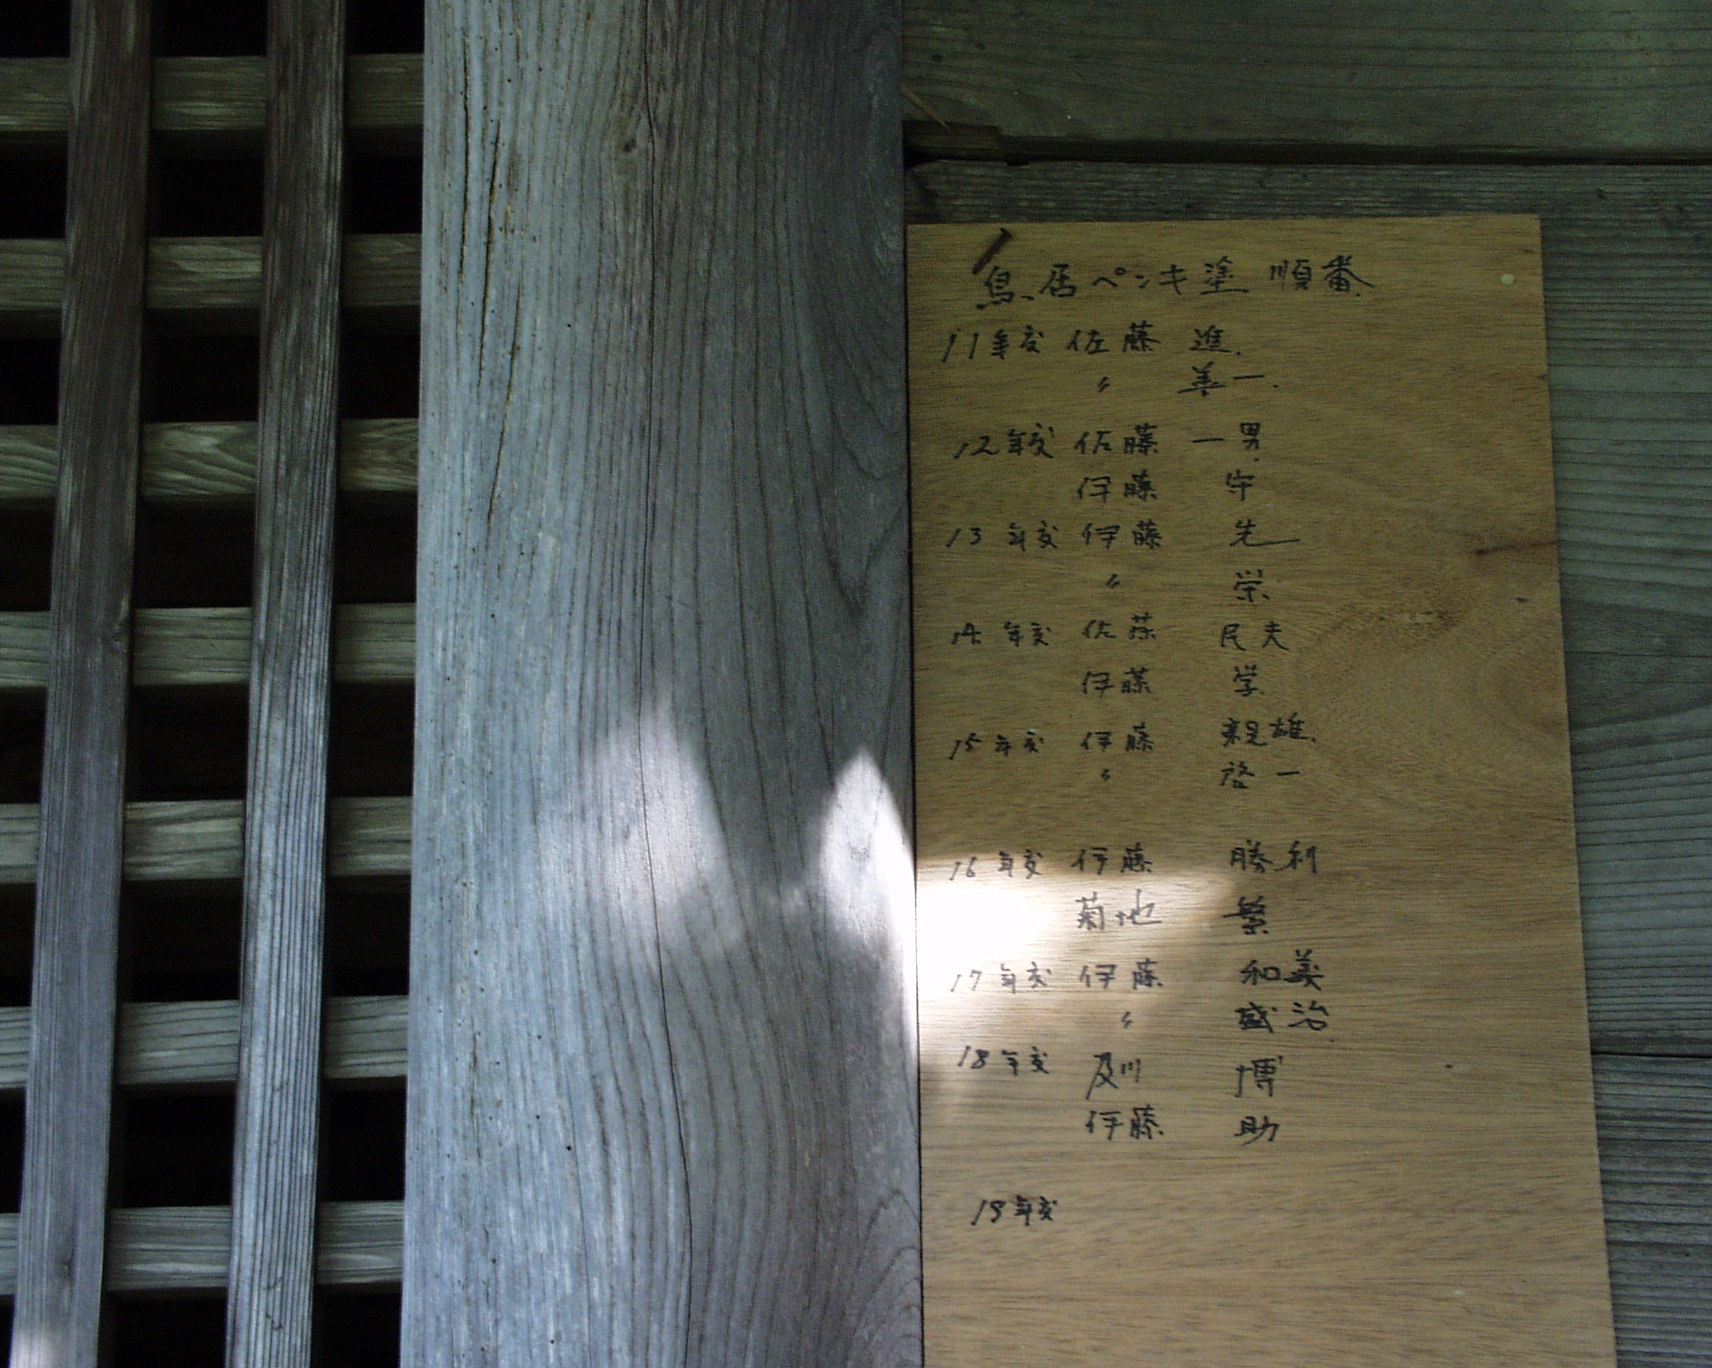 鳥居ペンキ塗順番
11年度 佐藤 進
〃 善一
12年度 佐藤 一男
伊藤 守
13年度 伊藤 先
〃 栄
14年度 佐藤 民夫
伊藤 学
15年度 伊藤 親雄
〃 啓一
16年度 伊藤 勝利
菊地 繁
17年度 伊藤 和美
〃 盛治
18年度 及川 博
伊藤 助
19年度